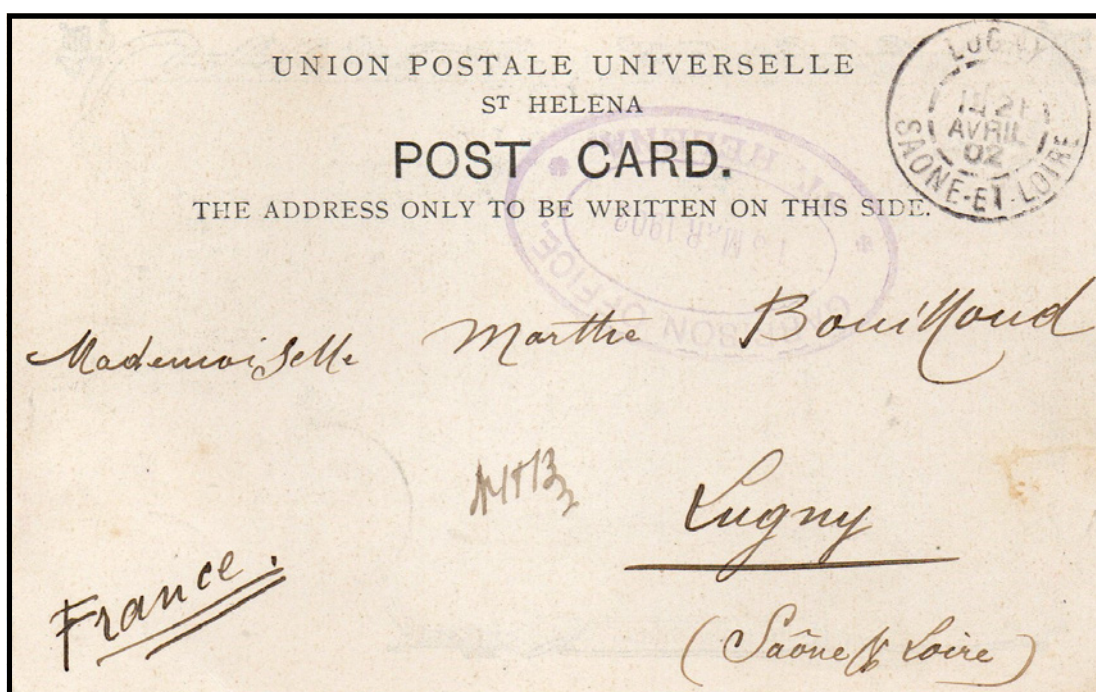 UNION POSTALE UNIVERSELLE
ST HELENA
POST CARD.
THE ADDRESS ONLY TO BE WRITTEN ON THIS SIDE.
LUGNY
21
AVRIL
02
SAONE-ET-LOIRE
ST. HELENA
MAR 1902
GARRISON OFFICE.
Mademoiselle Marthe Bouilloud
Lugny
France.
(Saône & Loire)